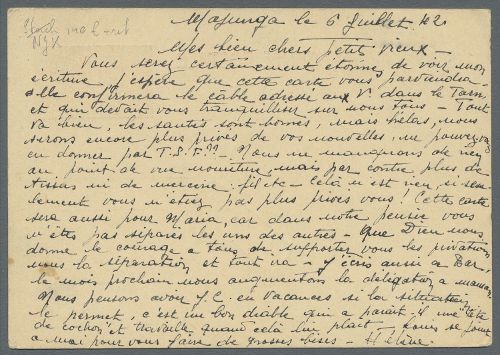 Majunga le 6 Juillet 42
Mes bien chers petit vieux -
Vous serez certainement étonné de voir mon
écriture j'espère que cette carte vous parviendra
elle confirmera le câble adressé aux V. dans le Tarn
et qui devait vous tranquilliser sur nous tous - Tout
va bien, les santés sont bonnes, mais hélas, nous
serons encore plus privés de vos nouvelles, ne pouvez-vous
en donner par T.S.F ?? - Nous ne manquons de rien
au point de vue nourriture, mais par contre plus de
tissus ni de mercerie fil etc - Celà n'est rien, si seu-
lement vous n'étiez pas plus privés vous ! Cette carte
sera aussi pour Maria, car dans notre pensée vous
n'êtes pas séparés les uns des autres - Que Dieu nous
donne le courage à tous de supporter vous les privations
nous la séparation et tout ira - J'écris aussi à
le mois prochain nous augmentons la délégation a maman
Nous pensons avoir J.C. en vacances si la situation
le permet, c'est un bon diable qui a parait il une tête
de cochon et travaille quand celà lui plait - Tous se joint
a moi pour vous faire de grosses bises - Hélène